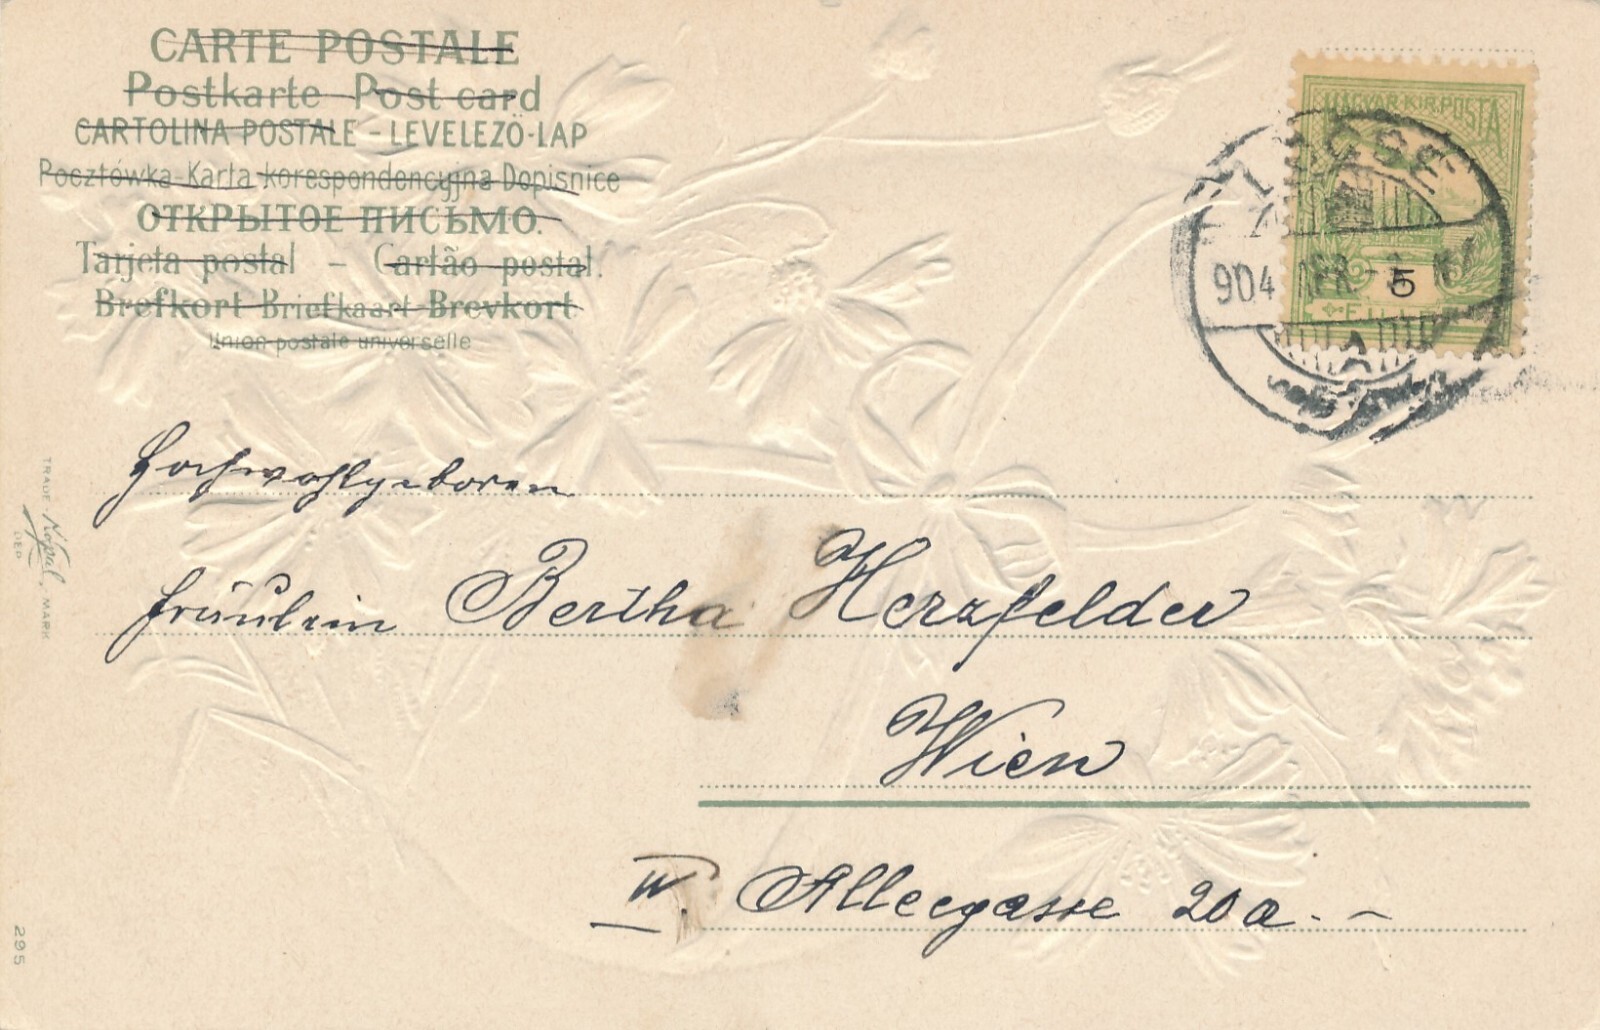 CARTE POSTALE
Postkarte Post card
CARTOLINA POSTALE - LEVELEZÖ-LAP
Pocztówka-Karta korespondencyjna Dopisnice
ОТКРЫТОЕ ПИСЬМО.
Tarjeta postal - Cartão postal.
Brefkort Briefkaart Brevkort
Union postale universelle
MAGYAR·KIR·POSTA
904 APR
5
Hochwohlgeboren
Fräulein Bertha Herzfelder
Wien
IV. Alleegasse 20a.-
TRADE Kopal MARK
DEP.
295